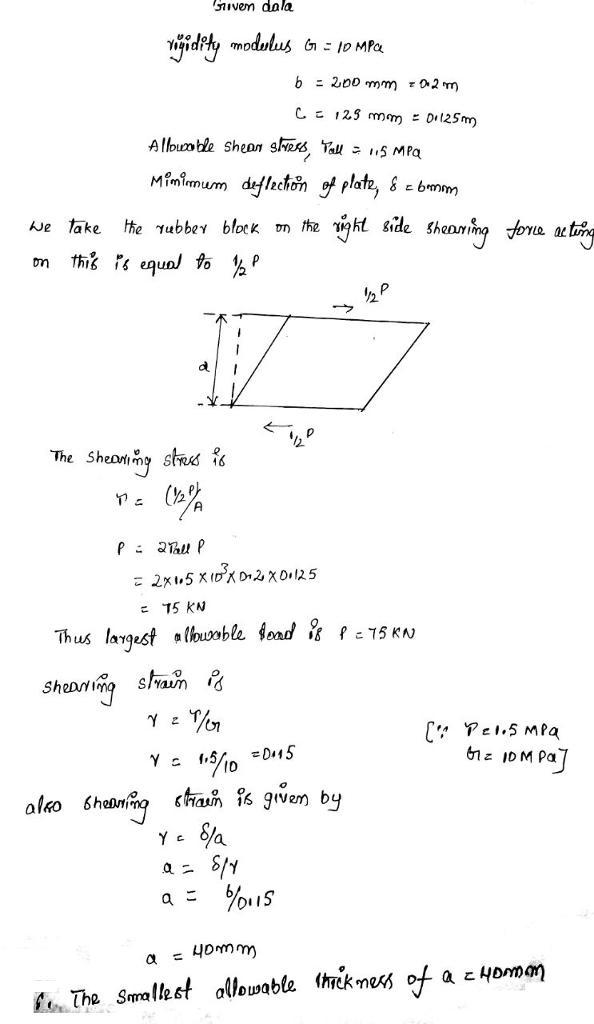 Given data
rigidity modulus G = 10 MPa
b = 200 mm = 0.2 m
C = 125 mm = 0.125m
Allowable shear stress, τall = 1.5 MPa
Minimum deflection of plate, δ = 6mm
We Take the rubber block on the right side shearing force acting
on this is equal to 1/2 P
1/2 P
a
1/2 P
The Shearing stress is
τ = (1/2 P)/A
P = 2τall P
= 2×1.5×10³×0.2×0.125
= 75 KN
Thus largest allowable load is P = 75 KN
shearing strain is
γ = τ/G [∵ τ=1.5 MPa
γ = 1.5/10 = 0.15 G= 10 MPa]
also shearing strain is given by
γ = δ/a
a = δ/γ
a = 6/0.15
a = 40mm
The smallest allowable thickness of a = 40mm